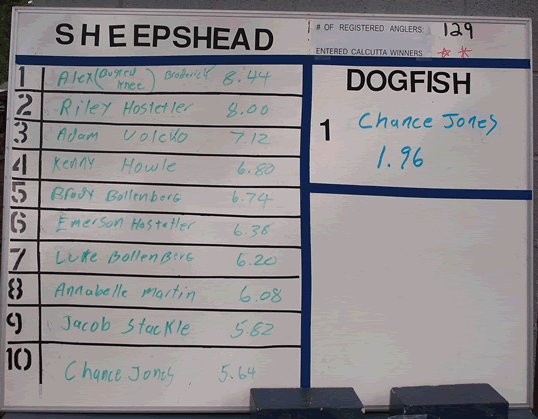 SHEEPSHEAD
# OF REGISTERED ANGLERS: 129
ENTERED CALCUTTA WINNERS ☆ *
1 Alex (Busted Knee) Broderick 8.44
2 Riley Hostetler 8.00
3 Adam Volcko 7.12
4 Kenny Howle 6.80
5 Brody Bollenberg 6.74
6 Emerson Hostetler 6.36
7 Luke Bollenberg 6.20
8 Annabelle Martin 6.08
9 Jacob Stackle 5.82
10 Chance Jones 5.64
DOGFISH
1 Chance Jones
1.96